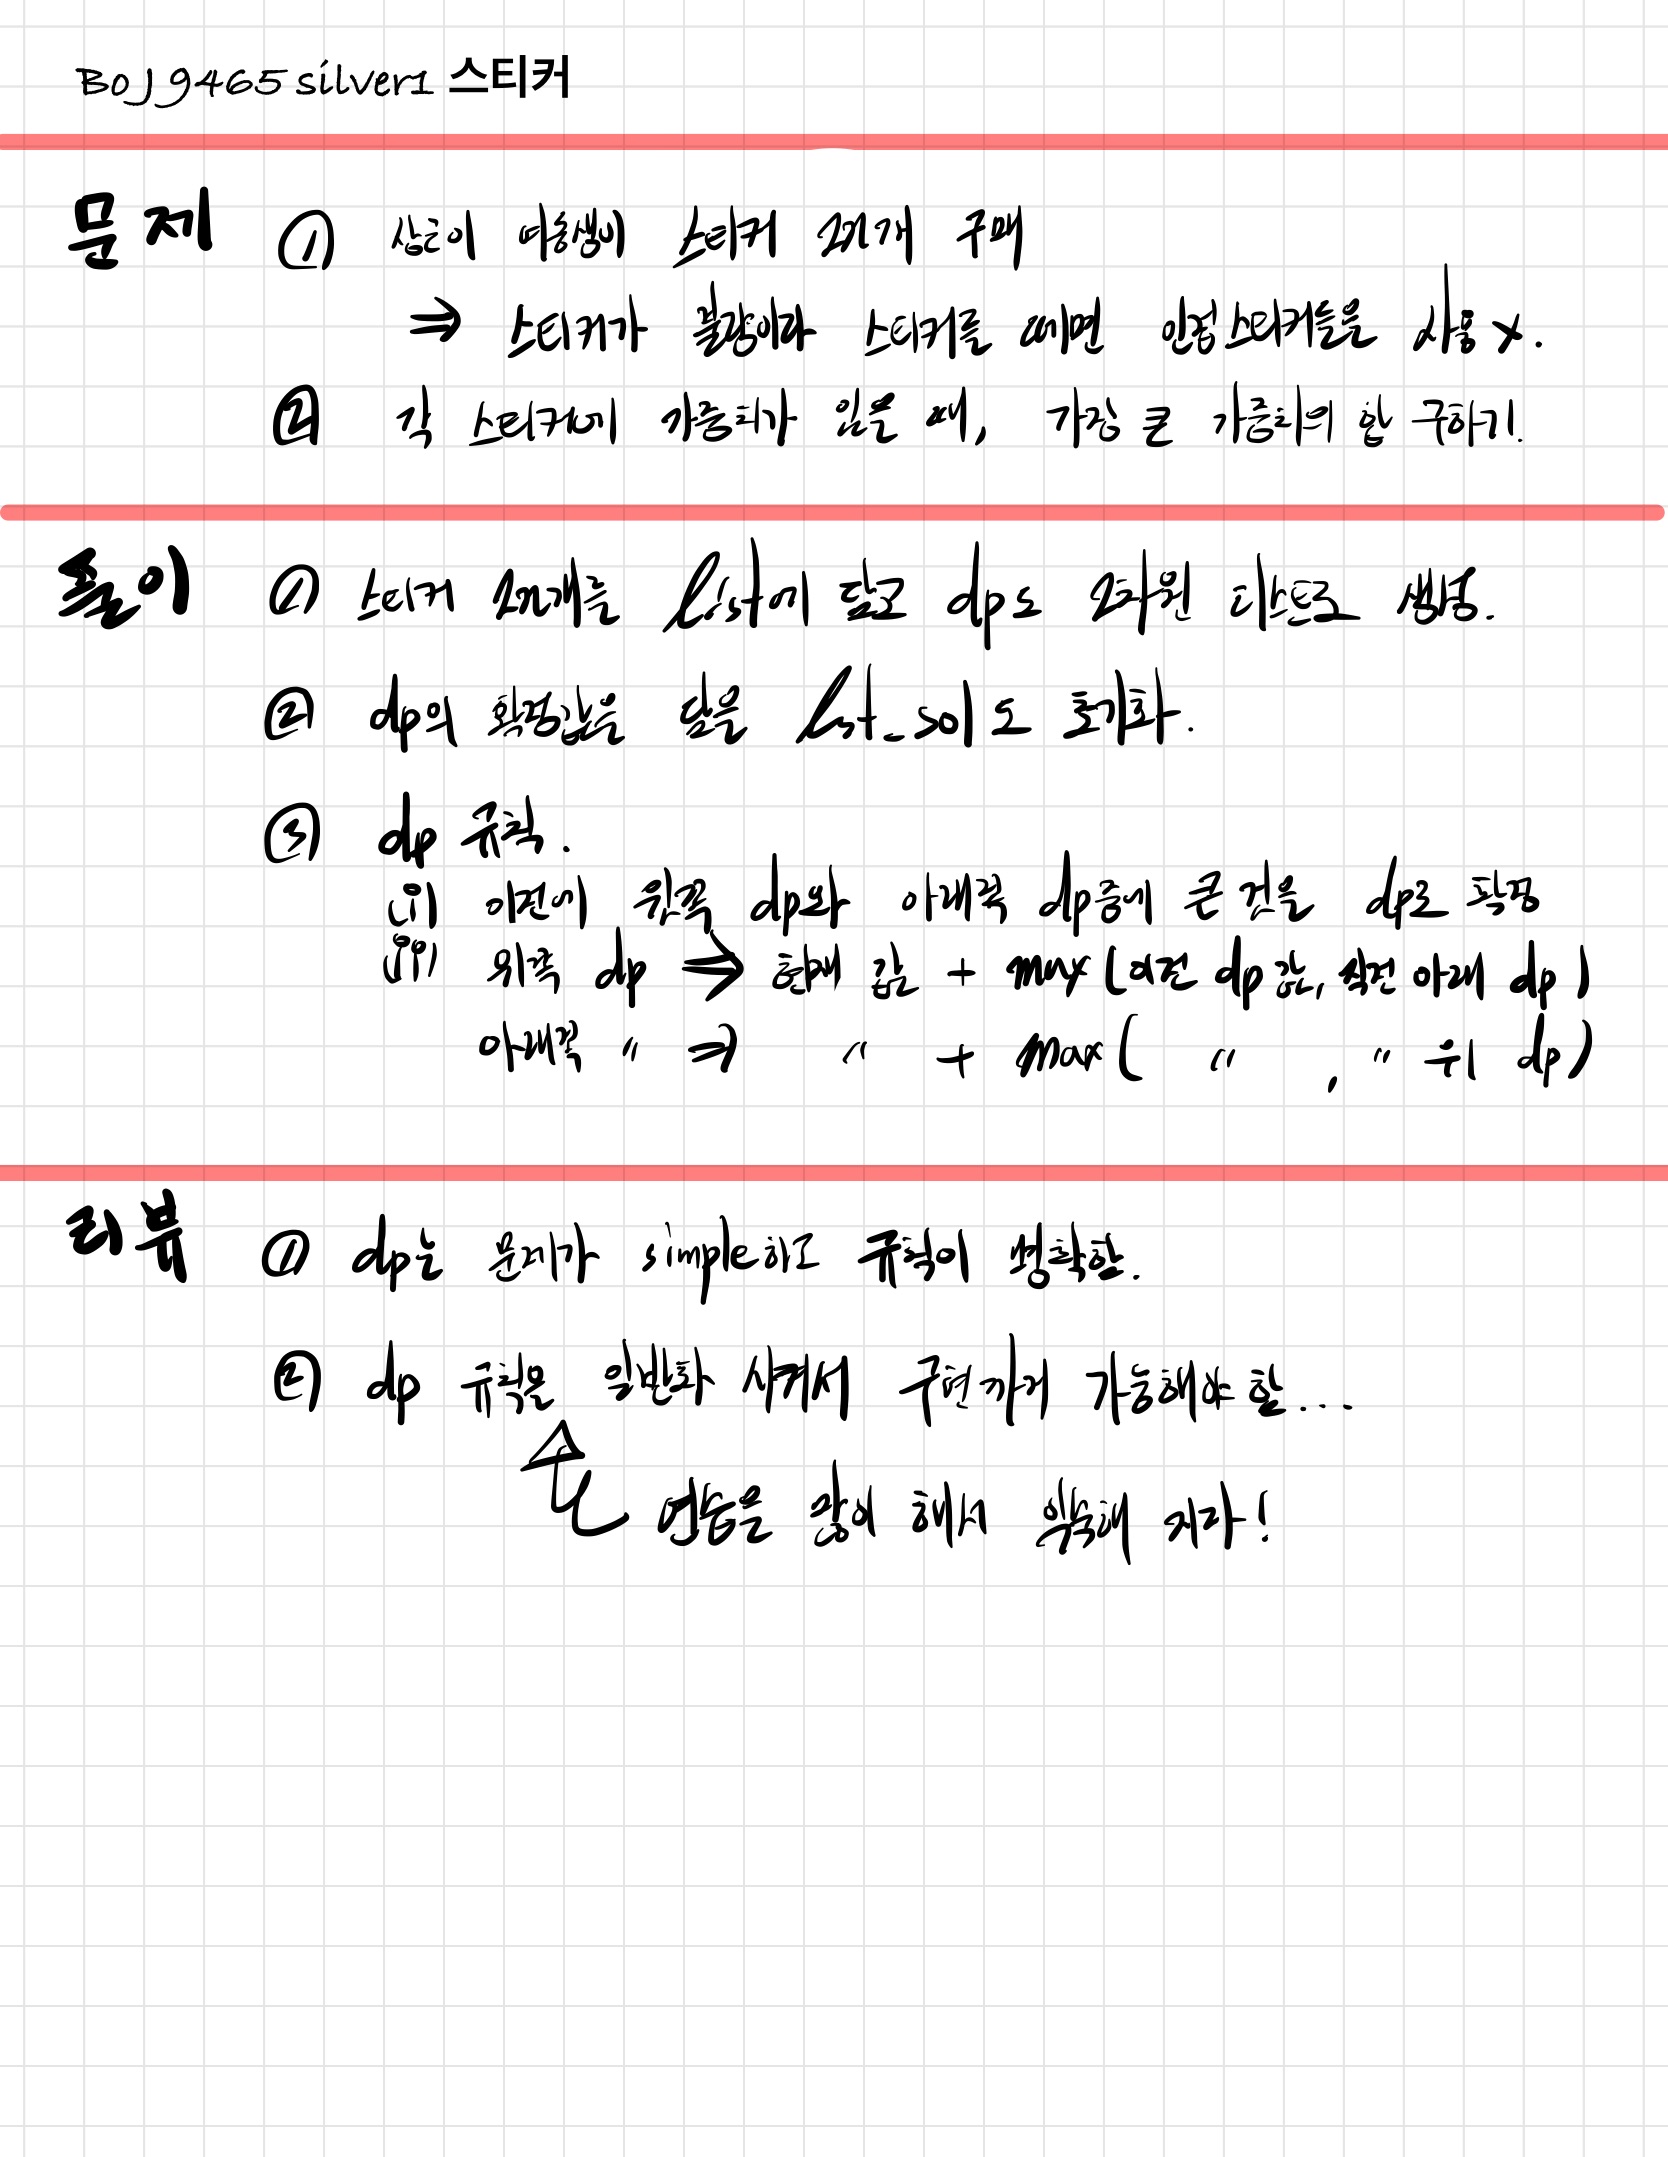 BOJ 9465 silver1 스티커
문제 ① 상근이 여동생이 스티커 2n개 구매
⇒ 스티커가 불량이라 스티커를 떼면 인접스티커들을 사용 x.
② 각 스티커에 가중치가 있을 때, 가장 큰 가중치의 합 구하기.
풀이 ① 스티커 2n개를 list에 담고 dp도 2차원 리스트로 생성.
② dp의 확정값을 담을 lst_sol도 초기화.
③ dp 규칙.
(i) 이전에 윗쪽 dp와 아래쪽 dp중에 큰 것을 dp로 확정
(ii) 위쪽 dp ⇒ 현재 값 + max (이전 dp 값, 직전 아래 dp)
아래쪽 〃 ⇒ 〃 + max ( 〃 , 〃 위 dp)
리뷰 ① dp는 문제가 simple하고 규칙이 명확함.
② dp 규칙을 일반화 시켜서 구현까지 가능해야 함...
연습을 많이 해서 익숙해 지자!